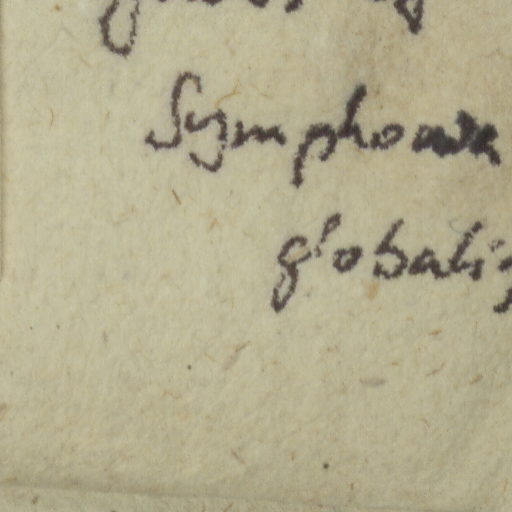 Symphonia
globalis